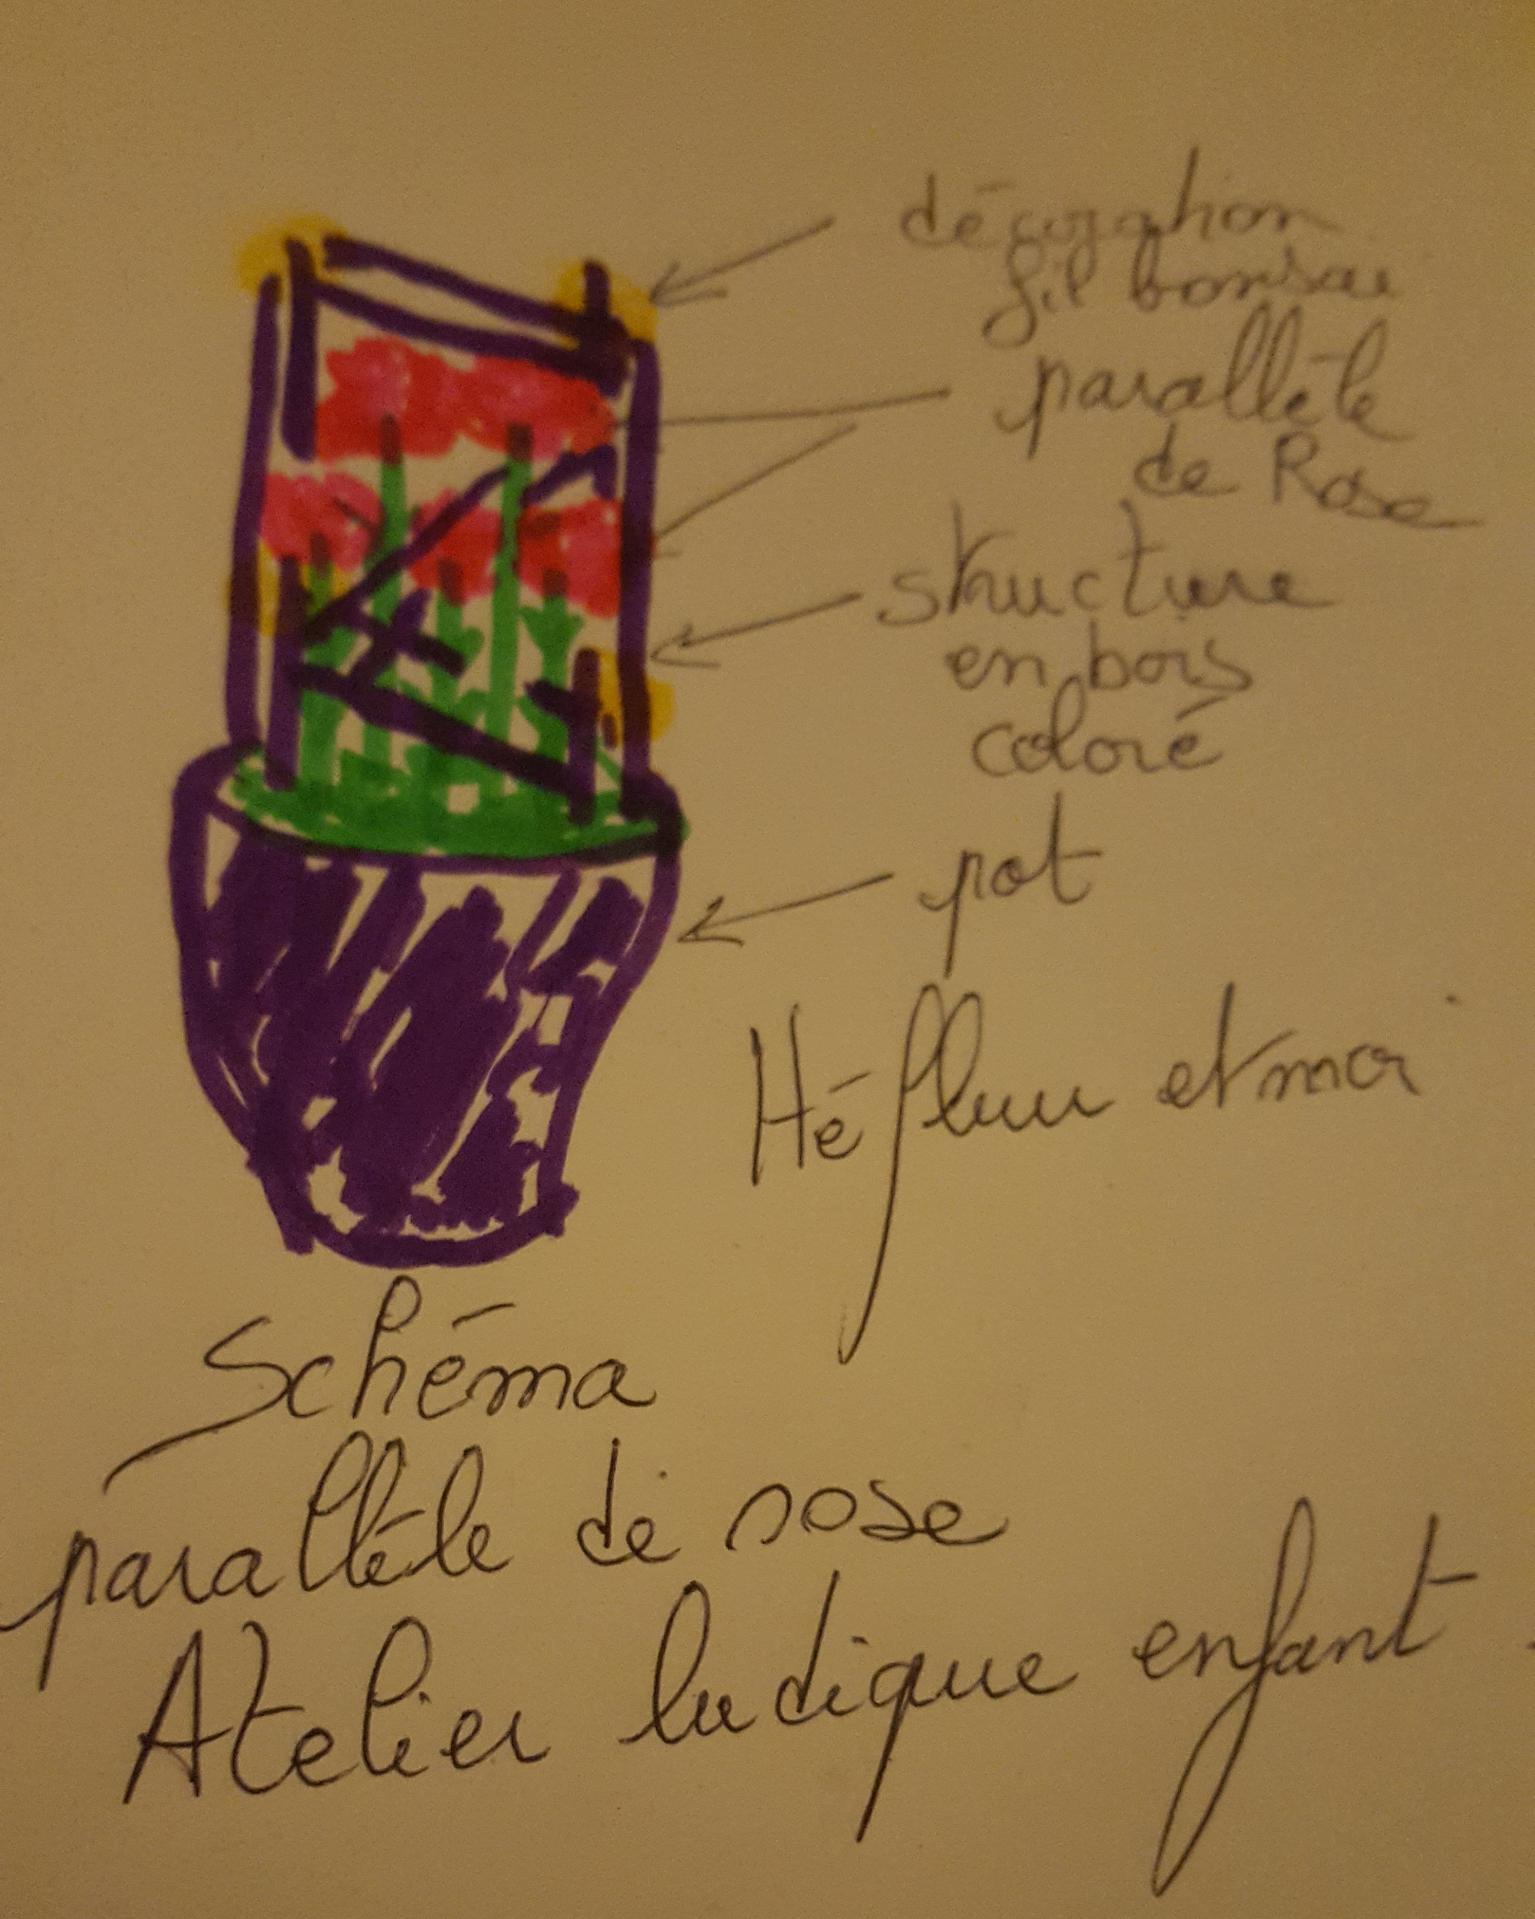 décoration
fil bonsai
parallèle
de Rose
structure
en bois
coloré
pot
Hé fleur et moi
Schéma
parallèle de rose
Atelier ludique enfant.